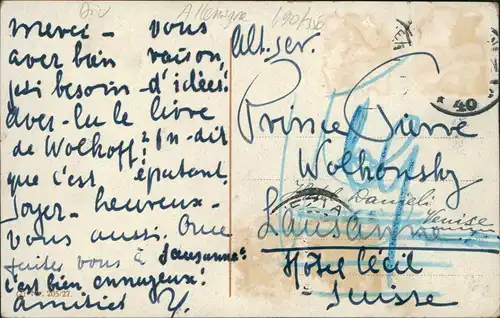 Allemagne
merci - vous
avez bien raison,
j'ai besoin - d'idées!
avez-lu le livre
de Wolkoff? On-dit
que c'est épatant.
Soyez - heureux -
vous aussi. Que
faites vous à Lausanne?
c'est bien ennuyeux!
Amitiés Y.
205/27.
40
Prince Pierre
Wolkonsky
Hôtel Danieli
Venise
Lausanne
Hôtel Cécil
Suisse